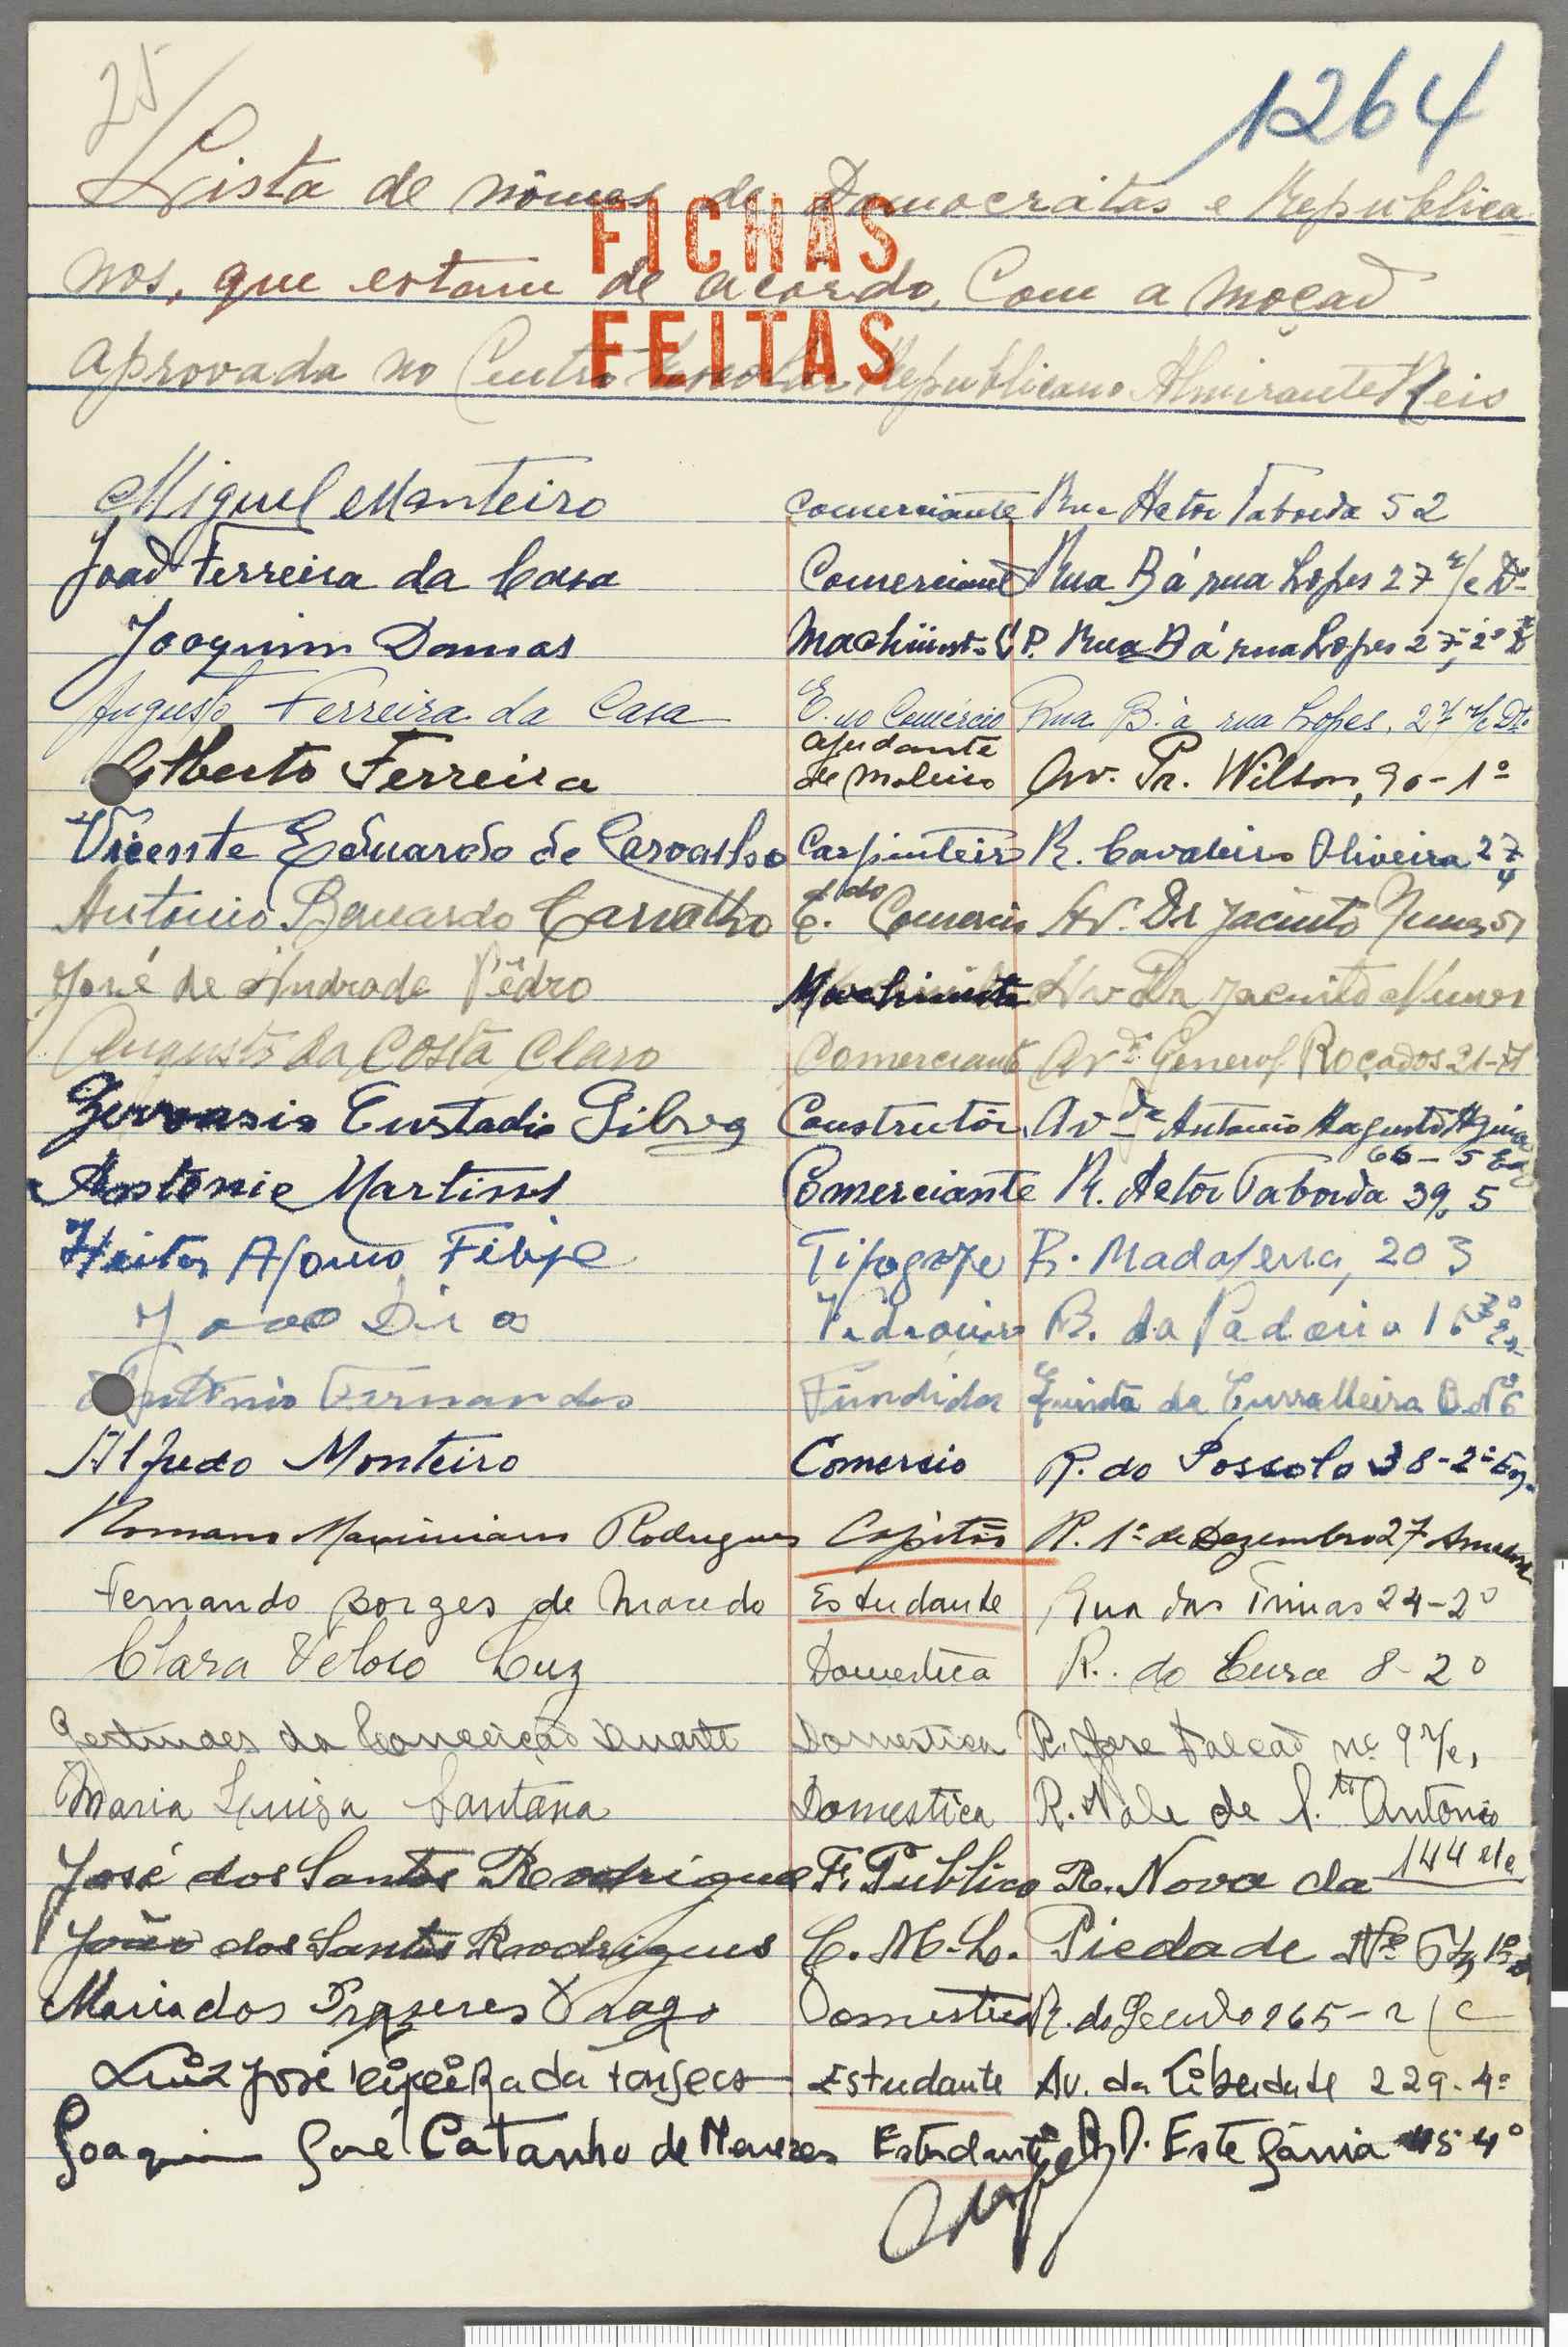 25
1264
Lista de nômes de Democratas e Republica
nos, que estam de acordo, Com a moçaõ
FICHAS
FEITAS
aprovada no Centro Escolar Republicano Almirante Reis
Miguel Monteiro Comerciante Rua Hetor Taborda 52
Joaõ Ferreira da Casa Comerciante Rua B á rua Lopes 27 r/c Dº
Joaquim Damas Machinist. C.P. Rua B á rua Lopes 27, 2º D
Augusto Ferreira da Casa E. no Comércio Rua B. à rua Lopes, 27 r/c Dto
Alberto Ferreira ajudante de moleiro Av. Pr. Wilson, 90-1º
Vicente Eduardo de Carvalho Carpinteiro R. Cavaleiro Oliveira 27
António Bernardo Carvalho E. do Comercio Av. Dr Jacinto Nunes 51
José de Andrade Pêdro Machinista Av Dr Jacinto Nunes
Augusto da Costa Claro Comerciante Avda General Roçadas 21-
Gervasio Eustadio Silva Construtôr Avda Antonio Augusto Aguiar
66-5 Eq
Antonio Martins Comerciante R. Aetor Taborda 39, 5
Heitor Afonso Filipe Tipografo R. Madalena, 203
João Dias Vidraceiro R. da Padaria 16 3º
António Fernandes Fundidor Quinta da Curralleira Nº6
Alfredo Monteiro Comersio R. do Possolo 38-2º Eq.
Romano Maximiano Rodrigues Capitão R. 1º de Dezembro 27 Amadora
Fernando Borges de Macedo Estudante Rua das Trinas 24-2º
Clara Veloso Luz Domestica R. do Cura 8-2º
Gertrudes da Conceição Duarte Domestica R. Jose Falcaõ nº 9 r/c,
Maria Luiza Santana Domestica R. Vale de S.to António
144 r/c
José dos Santos Rodrigues F. Publico R. Nova da
João dos Santos Rodrigues C. M. L. Piedade Nº
Maria dos Prazeres Domestica R. do Seculo 165-r/c
Luiz José da Fonseca Estudante Av. da Liberdade 229-4º
Joaquim José Catanho de Menezes Estudante R. D. Estefânia 45 4º